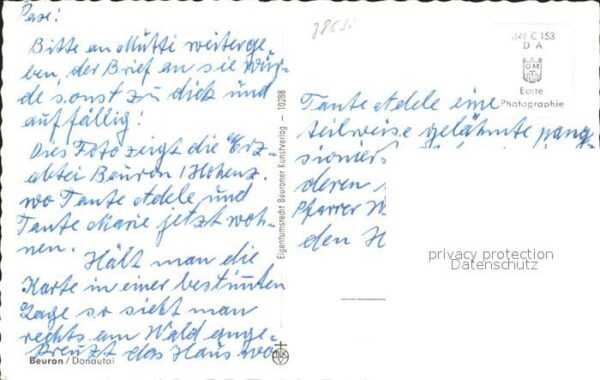 Pax!
Bitte an Mutti weiterge
ben, der Brief an sie wür-
de sonst zu dick und
auffällig!
Dies Foto zeigt die Erz-
abtei Beuron / Hohenz.
wo Tante Adele und
Tante Marie jetzt woh-
nen.
Hält man die
Karte in einer bestimmten
Lage so sieht man
rechts am Wald ange-
kreuzt das Haus wo
Beuron / Donautal
Eigentumsrecht Beuroner Kunstverlag — 10288
C 153
D A
GM
Echte
Photographie
Tante Adele eine
teilweise gelähmte pang
sionier
deren
Pfarrer W
den H
privacy protection
Datenschutz